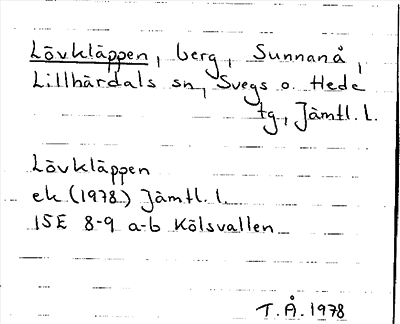 Lövkläppen, berg, Sunnanå,
Lillhärdals sn, Svegs o. Hede
tg, Jämtl. l.
Lövkläppen
ek (1978) Jämtl. l.
15E 8-9 a-b Kölsvallen
T. Å. 1978